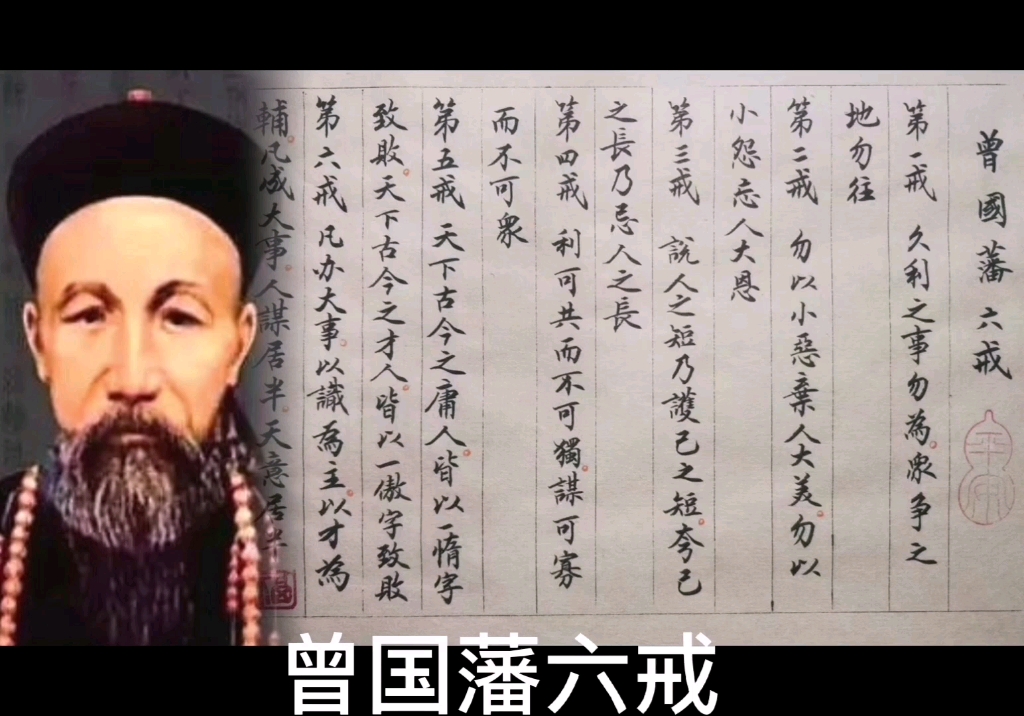 曾國藩六戒
第一戒 久利之事勿為。衆争之
地勿往
第二戒 勿以小惡棄人大美。勿以
小怨忘人大恩
第三戒 說人之短乃護己之短。夸己
之長乃忌人之長
第四戒 利可共而不可獨。謀可寡
而不可衆
第五戒 天下古今之庸人。皆以一惰字
致敗。天下古今之才人。皆以一傲字致敗
第六戒 凡办大事。以識為主。以才為
輔。凡成大事。人謀居半。天意居半
曾国藩六戒